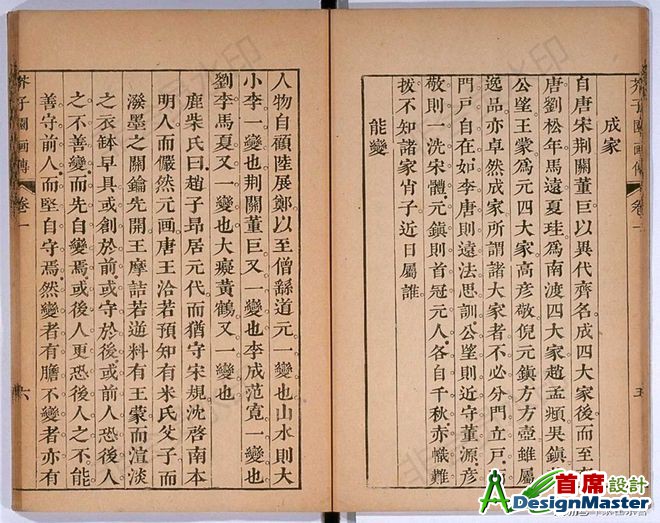 成家
自唐宋荆關董巨以異代齊名成四大家後而至
唐劉松年馬遠夏珪爲南渡四大家趙孟頫吳鎮
公望王蒙爲元四大家高彥敬倪元鎮方方壺雖屬
逸品亦卓然成家所謂諸大家者不必分門立戶而
門戶自在如李唐則遠法思訓公望則近守董源彥
敬則一洗宋體元鎮則首冠元人各自千秋赤幟難
拔不知諸家肖子近日屬誰
能變
人物自顧陸展鄭以至僧繇道元一變也山水則大
小李一變也荆關董巨又一變也李成范寬一變也
劉李馬夏又一變也大癡黃鶴又一變也
鹿柴氏曰趙子昂居元代而猶守宋規沈啓南本
明人而儼然元画唐王洽若預知有米氏父子而
潑墨之關鑰先開王摩詰若逆料有王蒙而渲淡
之衣鉢早具或創於前或守於後或前人恐後人
之不善變而先自變焉或後人更恐後人之不能
善守前人而堅自守焉然變者有膽不變者亦有
芥子園画傳 卷一 六
芥子園画傳 卷一 五
首席設計
DesignMaster